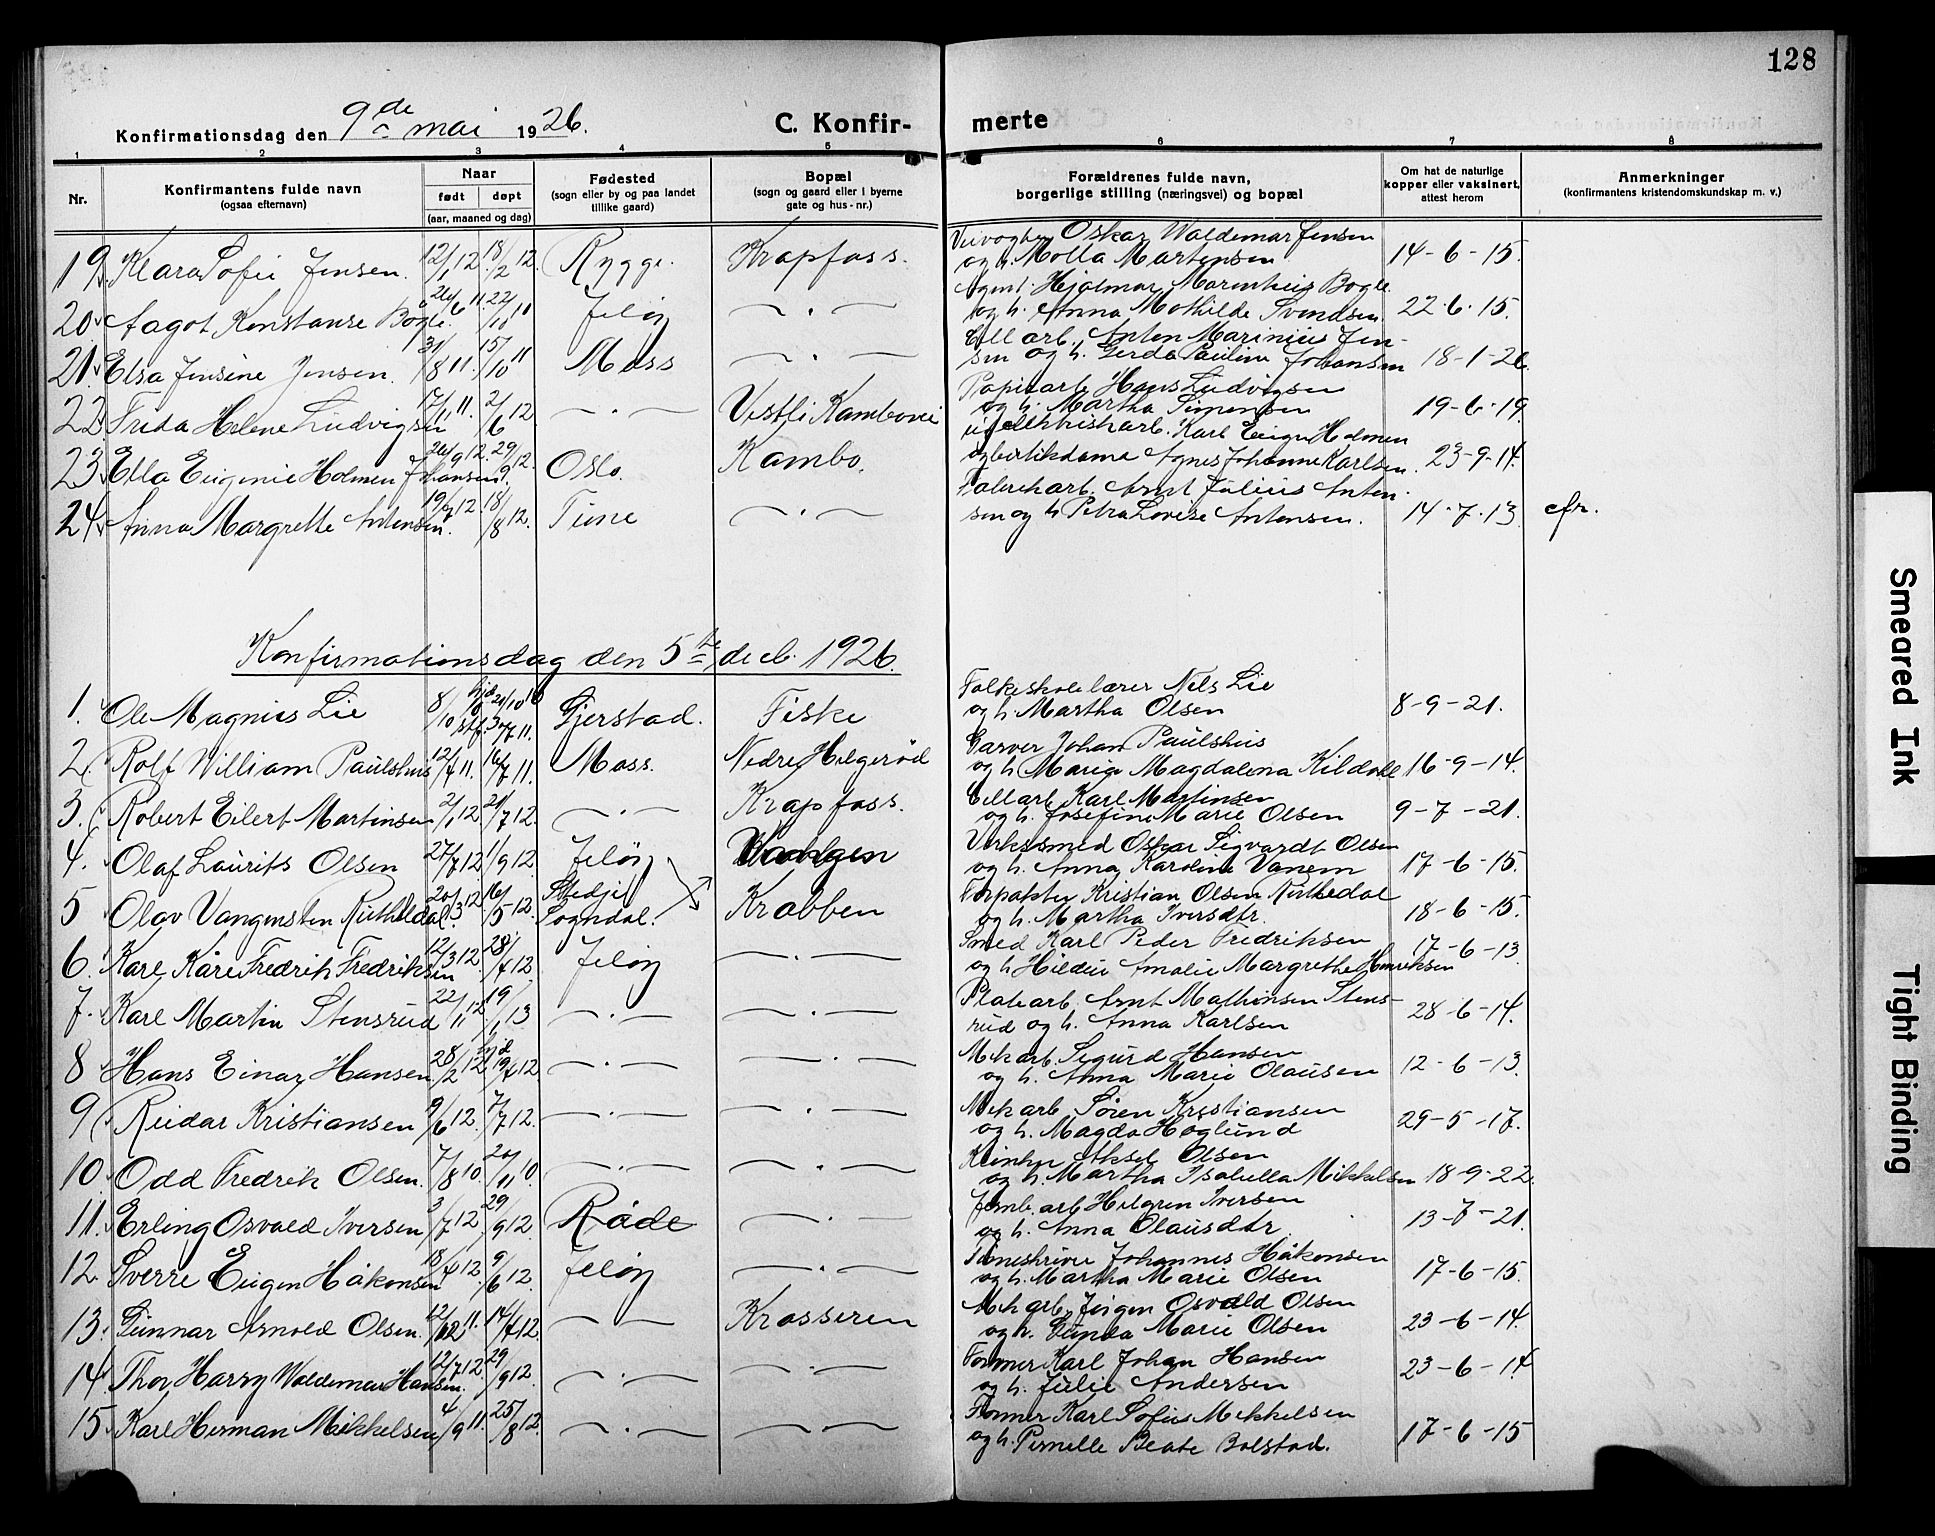 128
Konfirmationsdag den 9de mai 1926.
C. Konfirmerte
1 2 3 4 5 6 7 8
Nr.
Konfirmantens fulde navn
(ogsaa efternavn)
Naar
født døpt
(aar, maaned og dag)
Fødested
(sogn eller by og paa landet
tillike gaard)
Bopæl
(sogn og gaard eller i byerne
gate og hus-nr.)
Forældrenes fulde navn,
borgerlige stilling (næringsvei) og bopæl
Om hat de naturlige
kopper eller vaksinert,
attest herom
Anmerkninger
(konfirmantens kristendomskundskap m. v.)
19. Klara Sofie Jensen. 12/1 12. 18/2 12. Rygge. Krapfoss. Veivogter Oskar Waldemar Jensen
og h. Molla Martensen 14-6-15.
20. Aagot Konstanse Bogle. 26/6 11. 22/10 11 Jeløy — . — Agent Hjalmar Marenius Bogle
og h. Anna Mathilde Svendsen. 22.6.15.
21. Elsa Jensine Jensen. 31/8 11. 15/10 11 Moss — . — Cell arb. Anton Marinius Jen-
sen og h. Gerda Pauline Johansen 18-1-26.
22. Frida Helene Ludvigsen 17/11 11. 2/6 12 — . — Vestli Kambovei Papirarb Hans Ludvigsen
og h. Martha Simensen 19-6-19.
23. Ella Eugenie Holmen Johansen 26/9 12. 29/9 12. Oslo. Kambo. ugf elektriskarb. Karl Eugen Holmen
og butikdame Agnes Johanne Karlsen. 23-9-14.
24. Anna Margrethe Antonsen. 19/7 12. 18/8 12. Tune — . — Fabrikarb. Arnt Julius Anton-
sen og h Petra Lovise Antonsen. 14.7.13. cfr.
Konfirmationsdag den 5te decb. 1926.
1. Ole Magnus Lie 8/10 10 hjd 21/10 10 stf. 3/7 11. Gjerstad. Fiske Folkeskolelærer Nils Lie
og h. Martha Olsen 8-9-21.
2. Rolf William Paulshus 12/4 11. 16/7 11. Moss. Nedre Helgerød Garver Johan Paulshus
og h. Marie Magdalena Kildahl 16-9-14.
3. Robert Eilert Martinsen 2/1 12 21/7 12. — . — Krapfoss. Cellarb Karl Martinsen
og h. Josefine Marie Olsen 9-7-21.
4. Olaf Laurits Olsen 27/7 12. 1/9 12. Jeløy Vangen Verkssmed Oskar Sigvardt Olsen
og h. Anna Karoline Vanem 17-6-15.
5 Olav Vangensten Rutledal. 20/3 12 16/5 12. Stedje Sogndal. Krabben Forpakter Kristian Olsen Rutledal
og h. Martha Iversdtr. 18-6-15.
6. Karl Kåre Fredrik Fredriksen 12/3 12. 28/4 12 Jeløy — . — Smed Karl Peder Fredriksen
og h Hildur Amalie Margrethe Henriksen 17-6-13.
7. Karl Martin Stensrud 22/11 12 19/1 13 — . — — . — Platearb. Arnt Mathinsen Stens-
rud og h. Anna Karlsen 28-6-14.
8 Hans Einar Hansen. 28/2 12 hjd 19/4 12. — . — — . — Mek arb. Sigurd Hansen
og h. Anna Marie Olausen 12-6-13.
9 Reidar Kristiansen 9/6 12. 7/7 12. — . — — . — Mek arb Søren Kristiansen
og h. Magda Høglund 29-5-17.
10. Odd Fredrik Olsen. 7/8 10. 20/11 10 — . — — . — Aksel Olsen
og h. Martha Isabella Mikkelsen 18-9-22.
11. Erling Osvald Iversen 3/7 12 29/9 12. Råde — . — Jernb. arb Helgren Iversen
og h. Anna Olausdtr. 13-7-21.
12. Sverre Eugen Håkonsen 18/4 12. 9/6 12. Jeløy — . — Timeskriver Johannes Håkonsen
og h. Martha Marie Olsen 17-6-15.
13. Gunnar Arnold Olsen. 12/12 11. 14/4 12. — — Krosseren Mek arb. Jørgen Osvald Olsen
og h. Gunda Marie Olsen 23-6-14.
14. Thor Harry Waldemar Hansen. 12/7 12 29/9 12. — . — — . — Former Karl Johan Hansen
og h. Julie Andersen 23-6-14
15. Karl Herman Mikkelsen 4/9 11. 25/8 12. — . — — . — Former Karl Sofus Mikkelsen
og h. Pernille Beate Bolstad. 17-6-15
Smeared Ink
Tight Binding